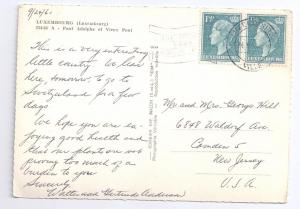 9/24/61
LUXEMBOURG (Luxembourg)
Pont Adolphe et Vieux Pont
1F50 1F50
LUXEMBOURG LUXEMBOURG
This is a very interesting
little country. We leave
here, tomorrow, to go to
Switzerland for a few
days
We hope you are en-
joying good health and
that our plants are not
proving too much of a
burden to you.
Sincerely
Walter and Gertrude Addison
Mr and Mrs. George Hill
6848 Waldorf Ave.
Camden 5
New Jersey
U.S.A.